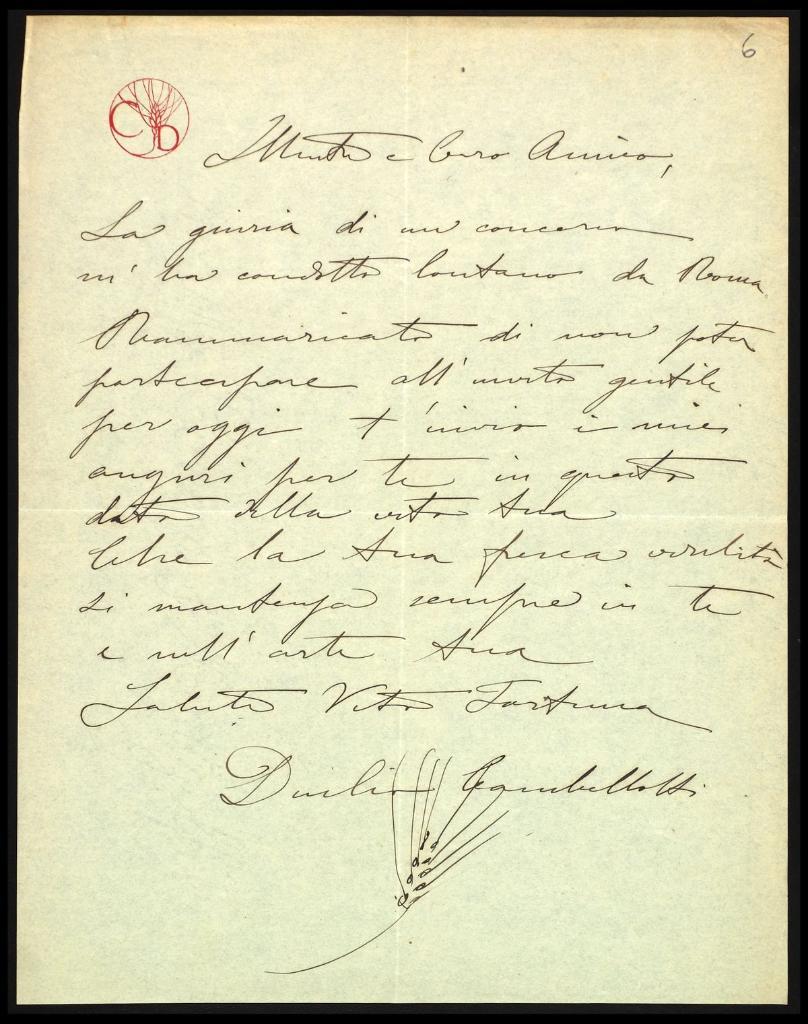 6
CD
Illustre e Caro Amico,
La giuria di un concorso
m'ha condotto lontano da Roma
Rammaricato di non poter
partecipare all'invito gentile
per oggi t'invio i miei
auguri per te in questa
data della vita tua
Che la tua fresca virilità
si mantenga sempre in te
e nell'arte tua
Salute Vita Fortuna
Duilio Cambellotti